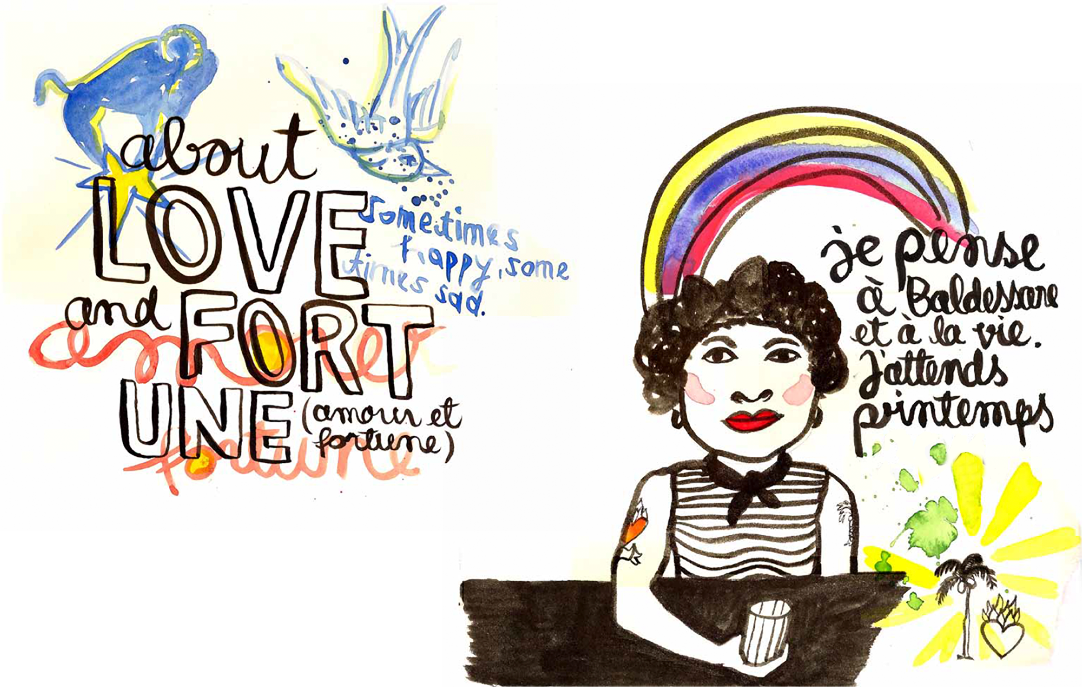 about
LOVE
and
FORT
UNE
(amour et
fortune)
amour et
fortune
sometimes
happy, some
times sad.
je pense
à Baldessare
et à la vie.
J'attends
printemps